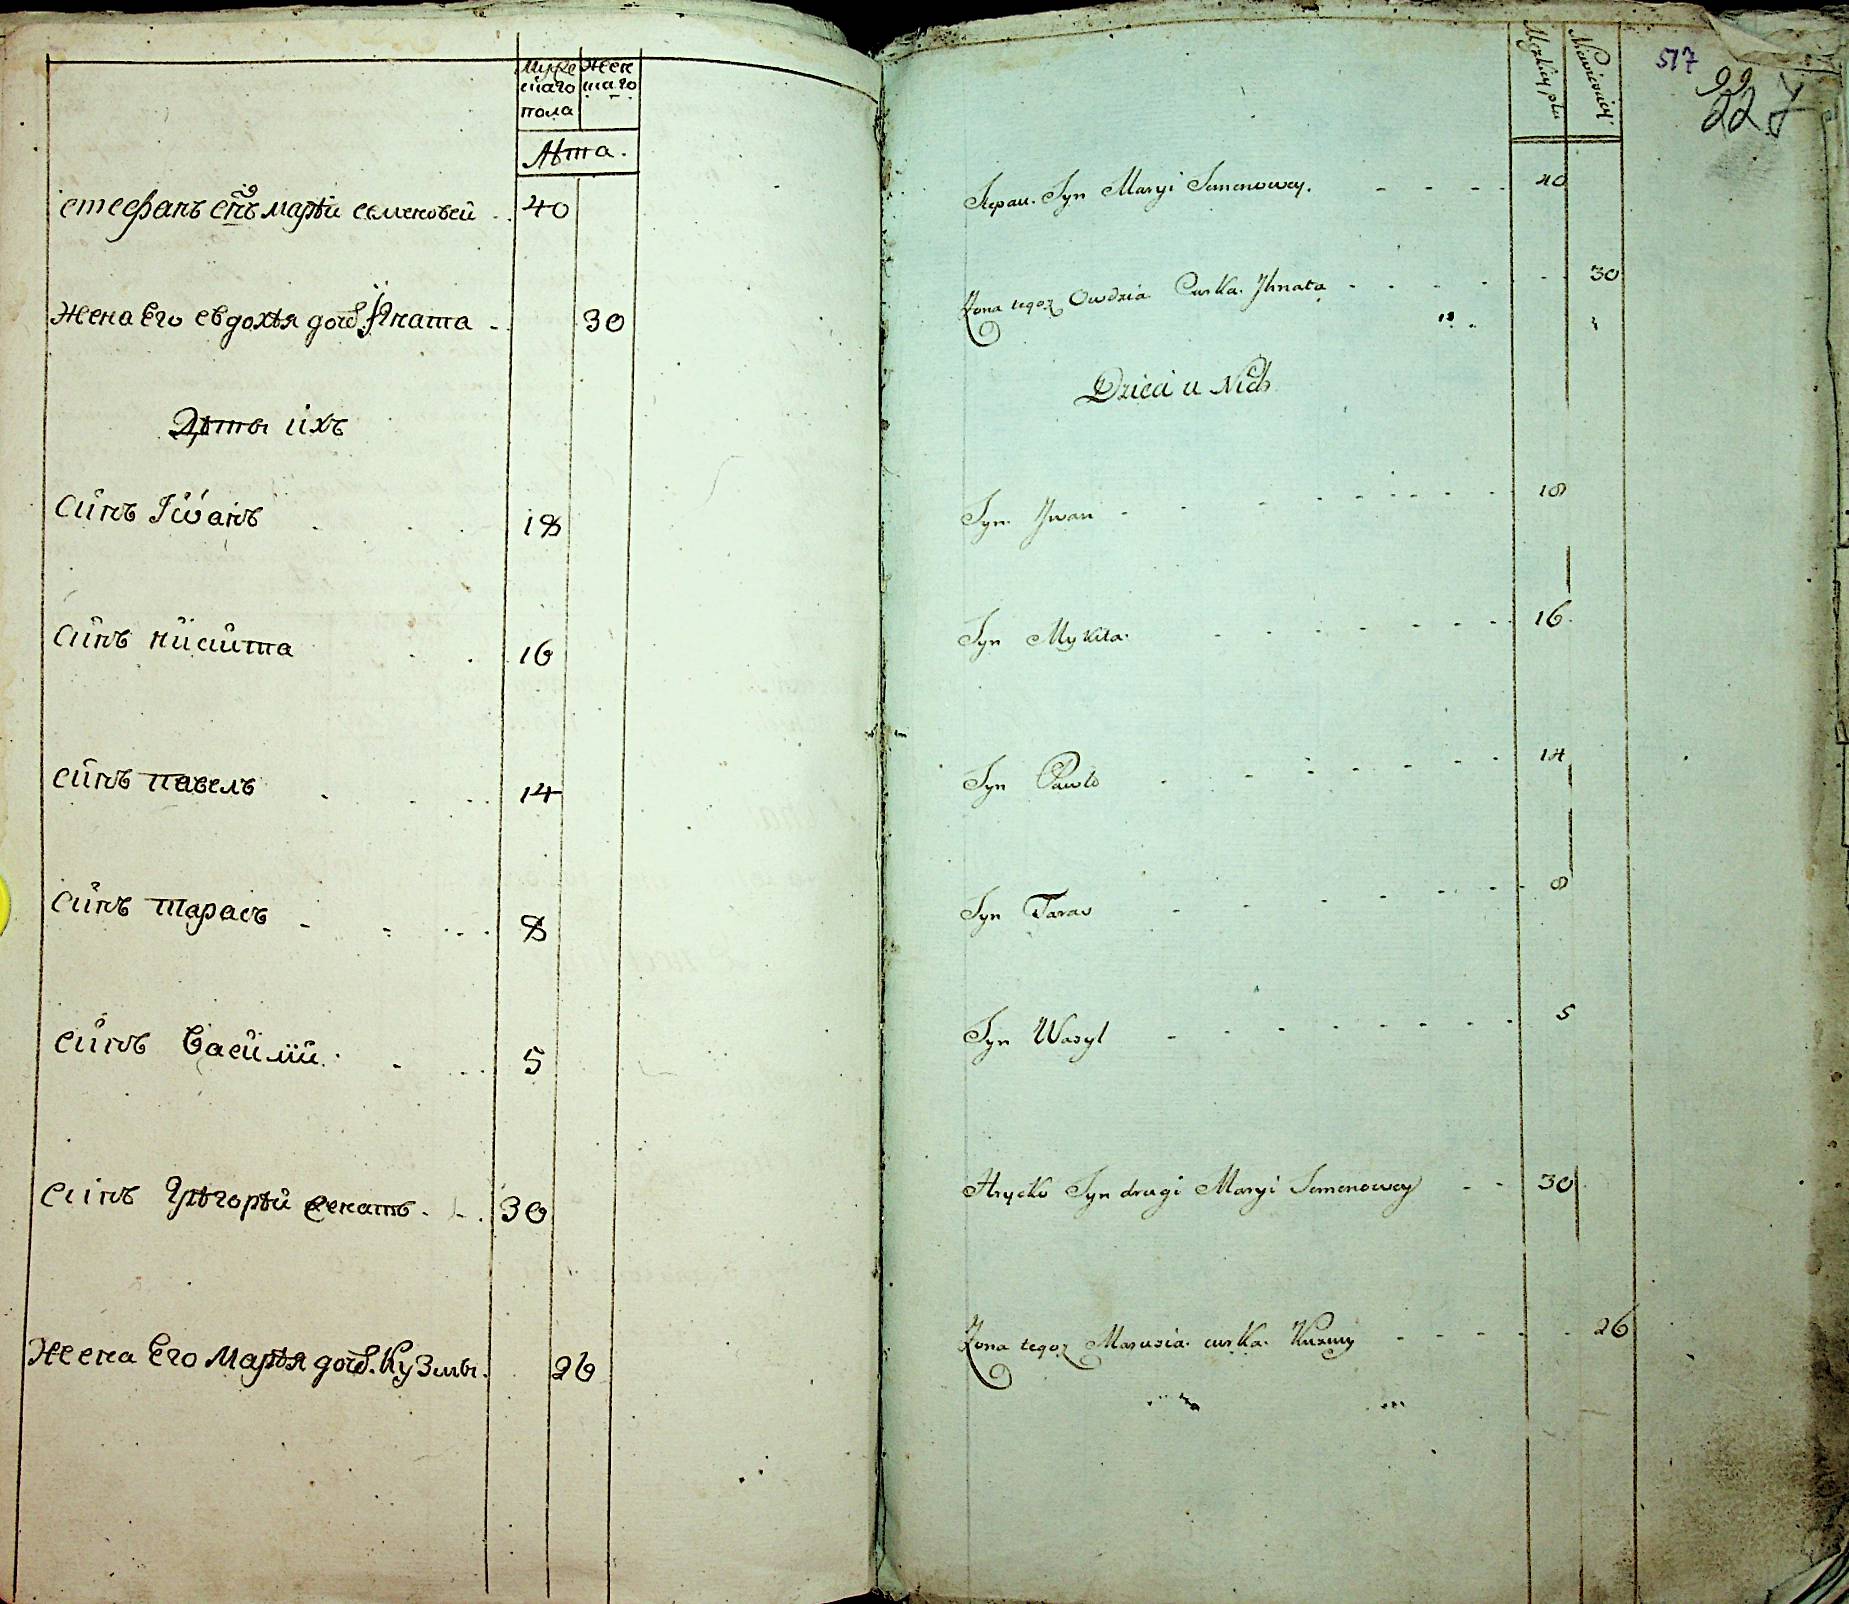 Муже Жен
скаго скаго
пола
Лѣта.
стефанъ сн͠ъ марѣи семеновой 40
жена Его евдохѣя дочь Игната 30
Дѣты ихъ
синъ Іванъ 18
синъ никита 16
синъ павелъ 14
синъ тарасъ 8
синъ Василий 5
синъ Грѣгорѣй женатъ 30
жена Его Марѣя дочь Кузмы 26
Męzkiey płci
Niewieściey
517
99
227
Stepan Syn Maryi Semenowey. 40
Żona tegoż Owdzia Curka Ihnata 30
Dzieci u Nich
Syn Jwan 18
Syn Mykita 16
Syn Pawło 14
Syn Taras 8
Syn Wasyl 5
Hryćko Syn drugi Maryi Semenowey 30
Żona tegoż Marusia curka Kuzmy 26